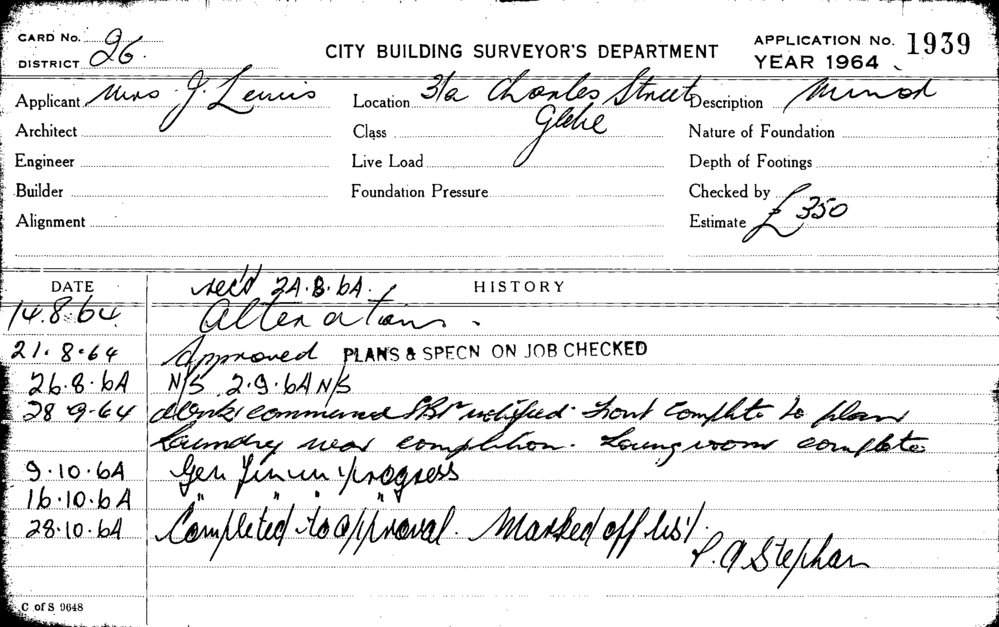 CARD No. 26. CITY BUILDING SURVEYOR'S DEPARTMENT APPLICATION No. 1939
DISTRICT YEAR 1964
Applicant Mrs J. Lewis Location 31a Charles Street Description Minor
Architect Class Glebe Nature of Foundation
Engineer Live Load Depth of Footings
Builder Foundation Pressure Checked by
Alignment Estimate £350
DATE rec'd 24.8.64. HISTORY
14.8.64. Alterations.
21.8.64 Approved PLANS & SPECN ON JOB CHECKED
26.8.64 N/S 2.9.64 N/S
28.9.64 Work commenced notified. Front complete to plan
Laundry near completion. Loungroom complete
9.10.64 Gen Fin in progress
16.10.64 " " " "
28.10.64 Completed to approval. Marked off list.
P. A Stephan
C of S 9648